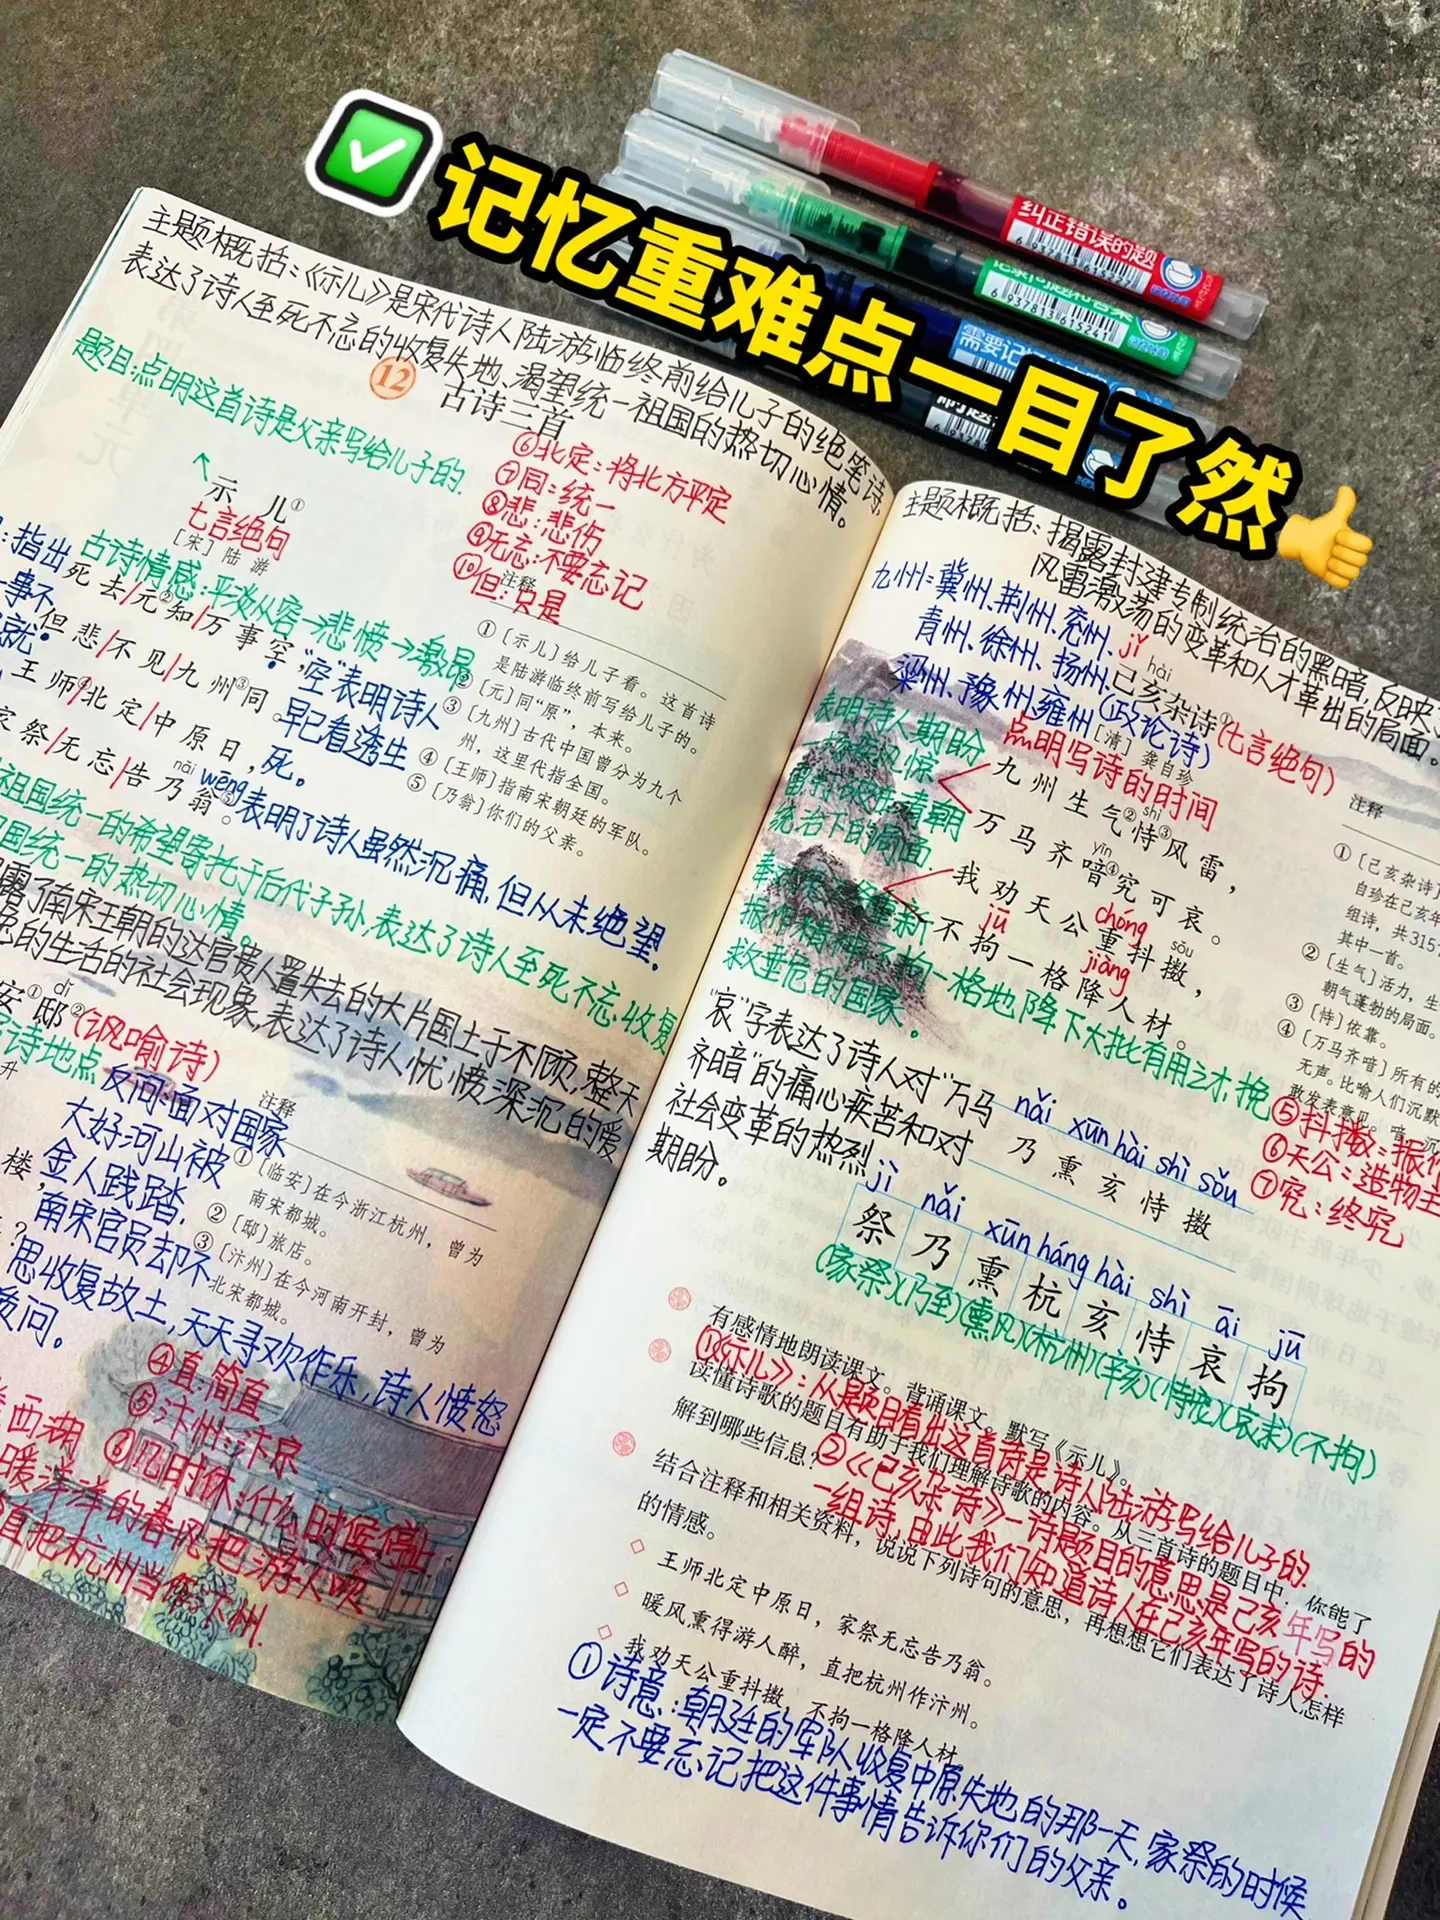 记忆重难点一目了然
纠正错误的题
6 937813 615227
记录问题和答案
6 937813 615241
需要记
主题概括:《示儿》是宋代诗人陆游临终前给儿子的绝笔诗,
表达了诗人至死不忘的收复失地、渴望统一祖国的热切心情。
12
古诗三首
题目:点明这首诗是父亲写给儿子的.
⑥北定:将北方平定
⑦同:统一
⑧悲:悲伤
⑨无忘:不要忘记
⑩但:只是
示儿①
七言绝句
[宋]陆游
古诗情感:平淡从容→悲愤→激昂
:指出
一事不
死去/元②知/万事空,
但悲/不见/九州③同。
王师④/北定/中原日,
家祭/无忘/告乃翁⑤。
nǎi wēng
"空"表明诗人
早已看透生
死。
表明了诗人虽然沉痛,但从未绝望.
注释
①〔示儿〕给儿子看。这首诗
是陆游临终前写给儿子的。
②〔元〕同“原”,本来。
③〔九州〕古代中国曾分为九个
州,这里代指全国。
④〔王师〕指南宋朝廷的军队。
⑤〔乃翁〕你们的父亲。
祖国统一的希望寄托于后代子孙,表达了诗人至死不忘,收复
国统一的热切心情。
露了南宋王朝的达官贵人置失去的大片国土于不顾,整天
的生活的社会现象,表达了诗人忧愤深沉的爱
dǐ
安①邸②(讽喻诗)
诗地点
升
楼,
?
反问:面对国家
大好河山被
金人践踏.
南宋官员却不
思收复故土,天天寻欢作乐,诗人愤怒
质问。
注释
①〔临安〕在今浙江杭州,曾为
南宋都城。
②〔邸〕旅店。
③〔汴州〕在今河南开封,曾为
北宋都城。
④直:简直
⑤汴州:汴京
⑥几时休:什么时候停止
西湖
暖洋洋的春风把游人
直把杭州当做汴州.
主题概括:揭露封建专制统治的黑暗,反映了
风雷激荡的变革和人才辈出的局面。
九州:冀州、荆州、兖州、
青州、徐州、扬州、
梁州、豫州、雍州
jǐ hài
己亥杂诗①(七言绝句)
(政论诗)
[清]龚自珍
点明写诗的时间
九州生气②恃③风雷,
shì
万马齐喑④究可哀。
yīn
我劝天公重抖擞,
chóng sǒu
不拘一格降人材。
jū jiàng
表明诗人期盼
清朝
统治下的局面.
重新
振作精神
不拘一格地降下大批有用之才,挽
救垂危的国家。
注释
①〔己亥杂诗〕
自珍在己亥年
组诗,共315
其中一首。
②〔生气〕活力,生
朝气蓬勃的局面。
③〔恃〕依靠。
④〔万马齐喑〕所有的
无声。比喻人们沉默
敢发表意见。喑,沉
⑤抖擞:振作
⑥天公:造物主
⑦究:终究
"哀"字表达了诗人对"万马
齐喑"的痛心疾苦和对
社会变革的热烈
期盼。
nǎi xūn hài shì sǒu
乃熏亥恃擞
jì nǎi xūn háng hài shì āi jū
祭乃熏杭亥恃哀拘
(家祭)(乃至)(熏风)(杭州)(辛亥)(恃)(哀求)(不拘)
有感情地朗读课文。背诵课文。默写《示儿》。
①《示儿》:从题目看出这首诗是诗人陆游写给儿子的.
读懂诗歌的题目有助于我们理解诗歌的内容。从三首诗的题目中,你能了
解到哪些信息?
②《己亥杂诗》一诗题目的意思是己亥年写的
一组诗,由此我们知道诗人在己亥年写的诗.
结合注释和相关资料,说说下列诗句的意思,再想想它们表达了诗人怎样
的情感。
王师北定中原日,家祭无忘告乃翁。
暖风熏得游人醉,直把杭州作汴州。
我劝天公重抖擞,不拘一格降人材
①诗意:朝廷的军队收复中原失地的那一天,家祭的时候
一定不要忘记把这件事情告诉你们的父亲。